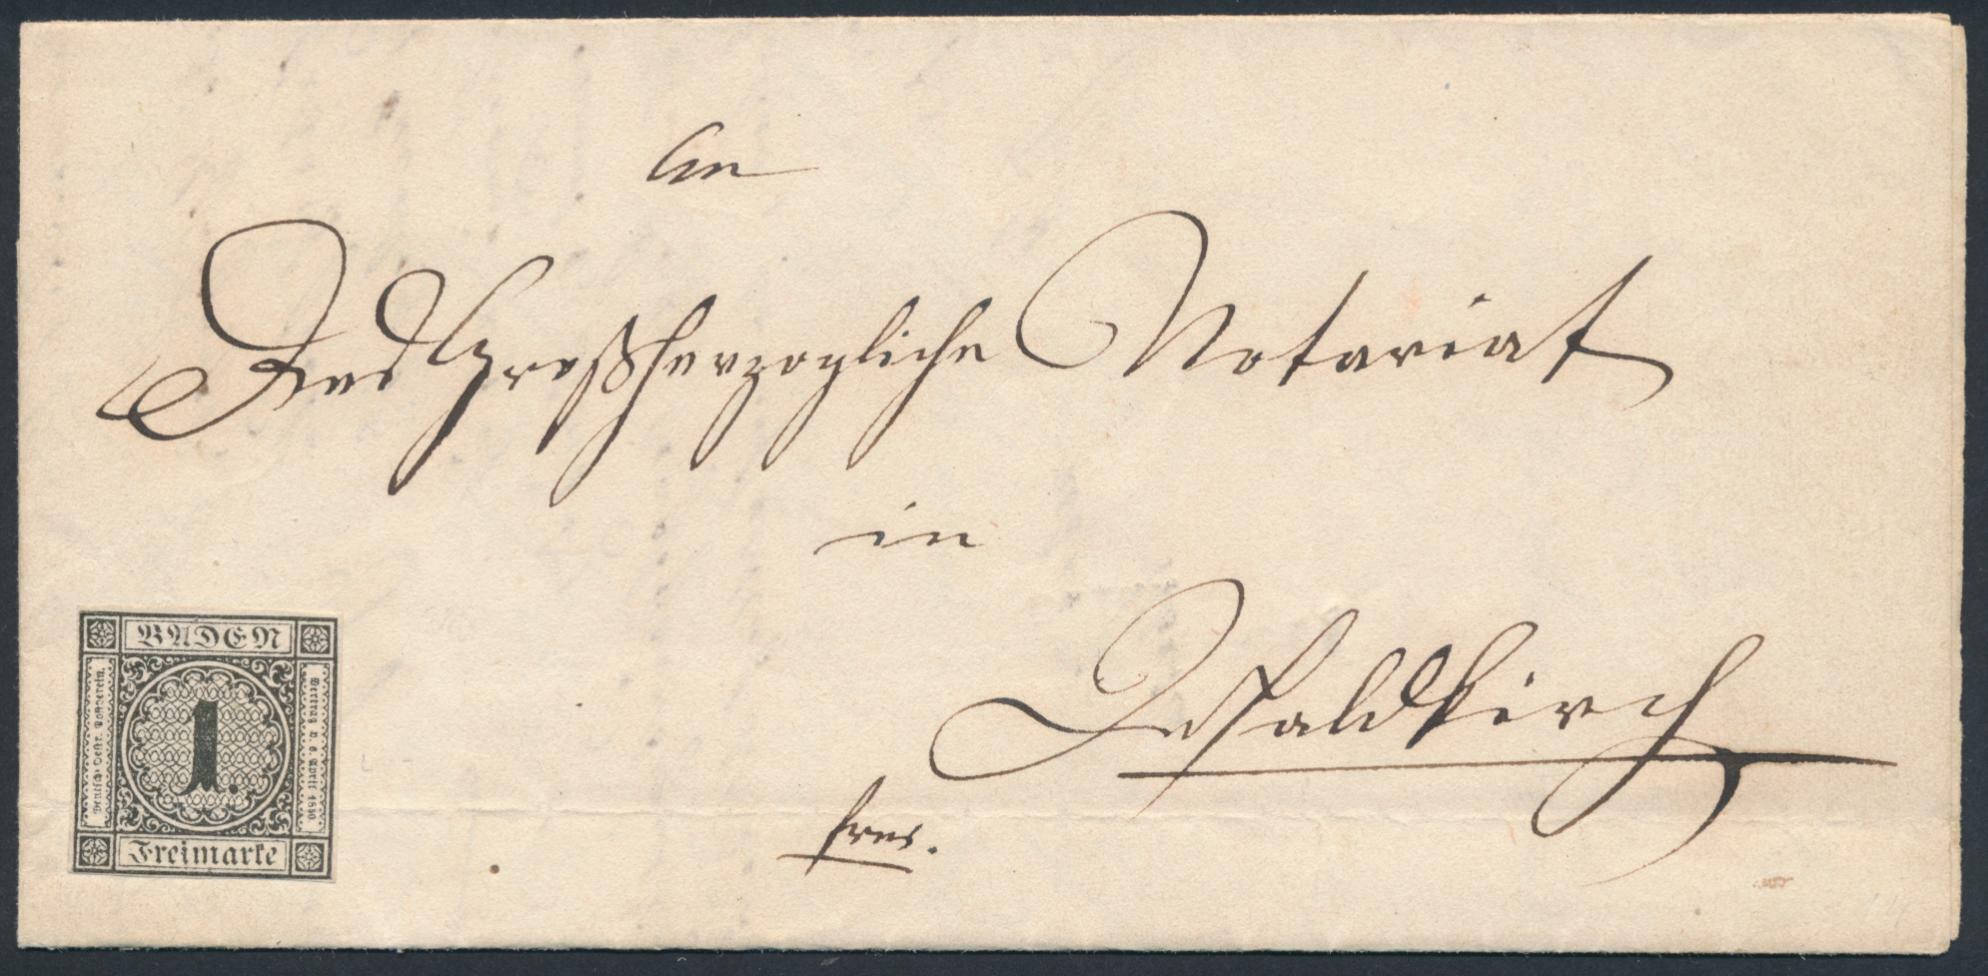 An
Das Großherzogliche Notariat
in
Waldkirch
frei.
BADEN
Deutsch-Oestr. Postverein.
1.
Vertrag v. 6. April 1850
Freimarke